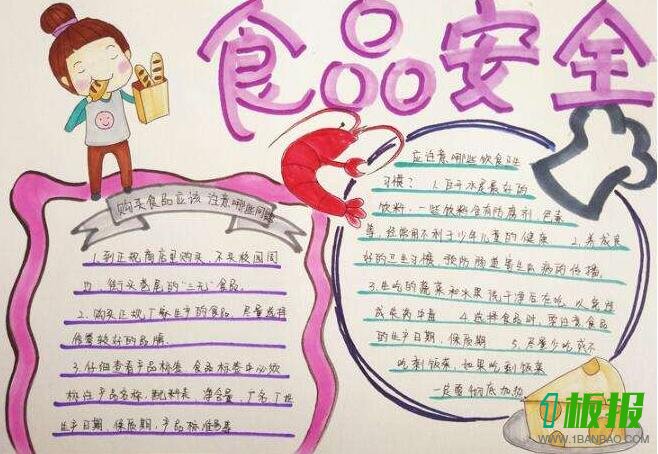 食品安全
购买食品应该注意哪些问题
1.到正规商店里购买,不买校园周
边、街头巷尾的“三无”食品。
2.购买正规厂家生产的食品,尽量选择
信誉较好的品牌。
3.仔细查看产品标签,食品标签中必须
标注产品名称、配料表、净含量、厂名、厂址
生产日期、保质期、产品标准号等
应注意哪些饮食卫生
习惯? 1.白开水是最好的
饮料,一些饮料含有防腐剂、色素
等,经常饮用不利于少年儿童的健康 2.养成良
好的卫生习惯 预防肠道寄生虫病的传播
3.生吃的蔬菜和水果洗干净后在吃,以免造
成农药中毒 4.选择食品时,要注意食品
的生产日期、保质期 5.尽量少吃或不
吃剩饭菜,如果吃剩饭菜
一定要彻底加热
1板报
WWW.1BANBAO.COM